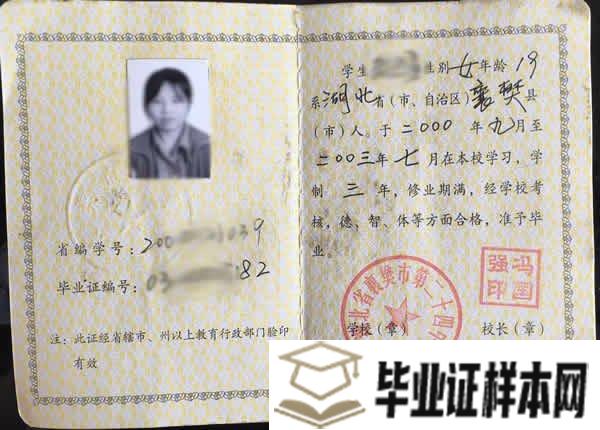 省编学号：200 039
毕业证编号：03 182
注：此证经省辖市、州以上教育行政部门验印
有效
学生 性别 女 年龄 19
系 湖北 省（市、自治区）襄樊 县
（市）人。于 二000 年 九 月至
二00三 年 七 月在本校学习，学
制 三 年，修业期满，经学校考
核，德、智、体等方面合格，准予毕
业。
北省襄樊市第二十四
冯国强印
学校（章） 校长（章）
毕业证样本网